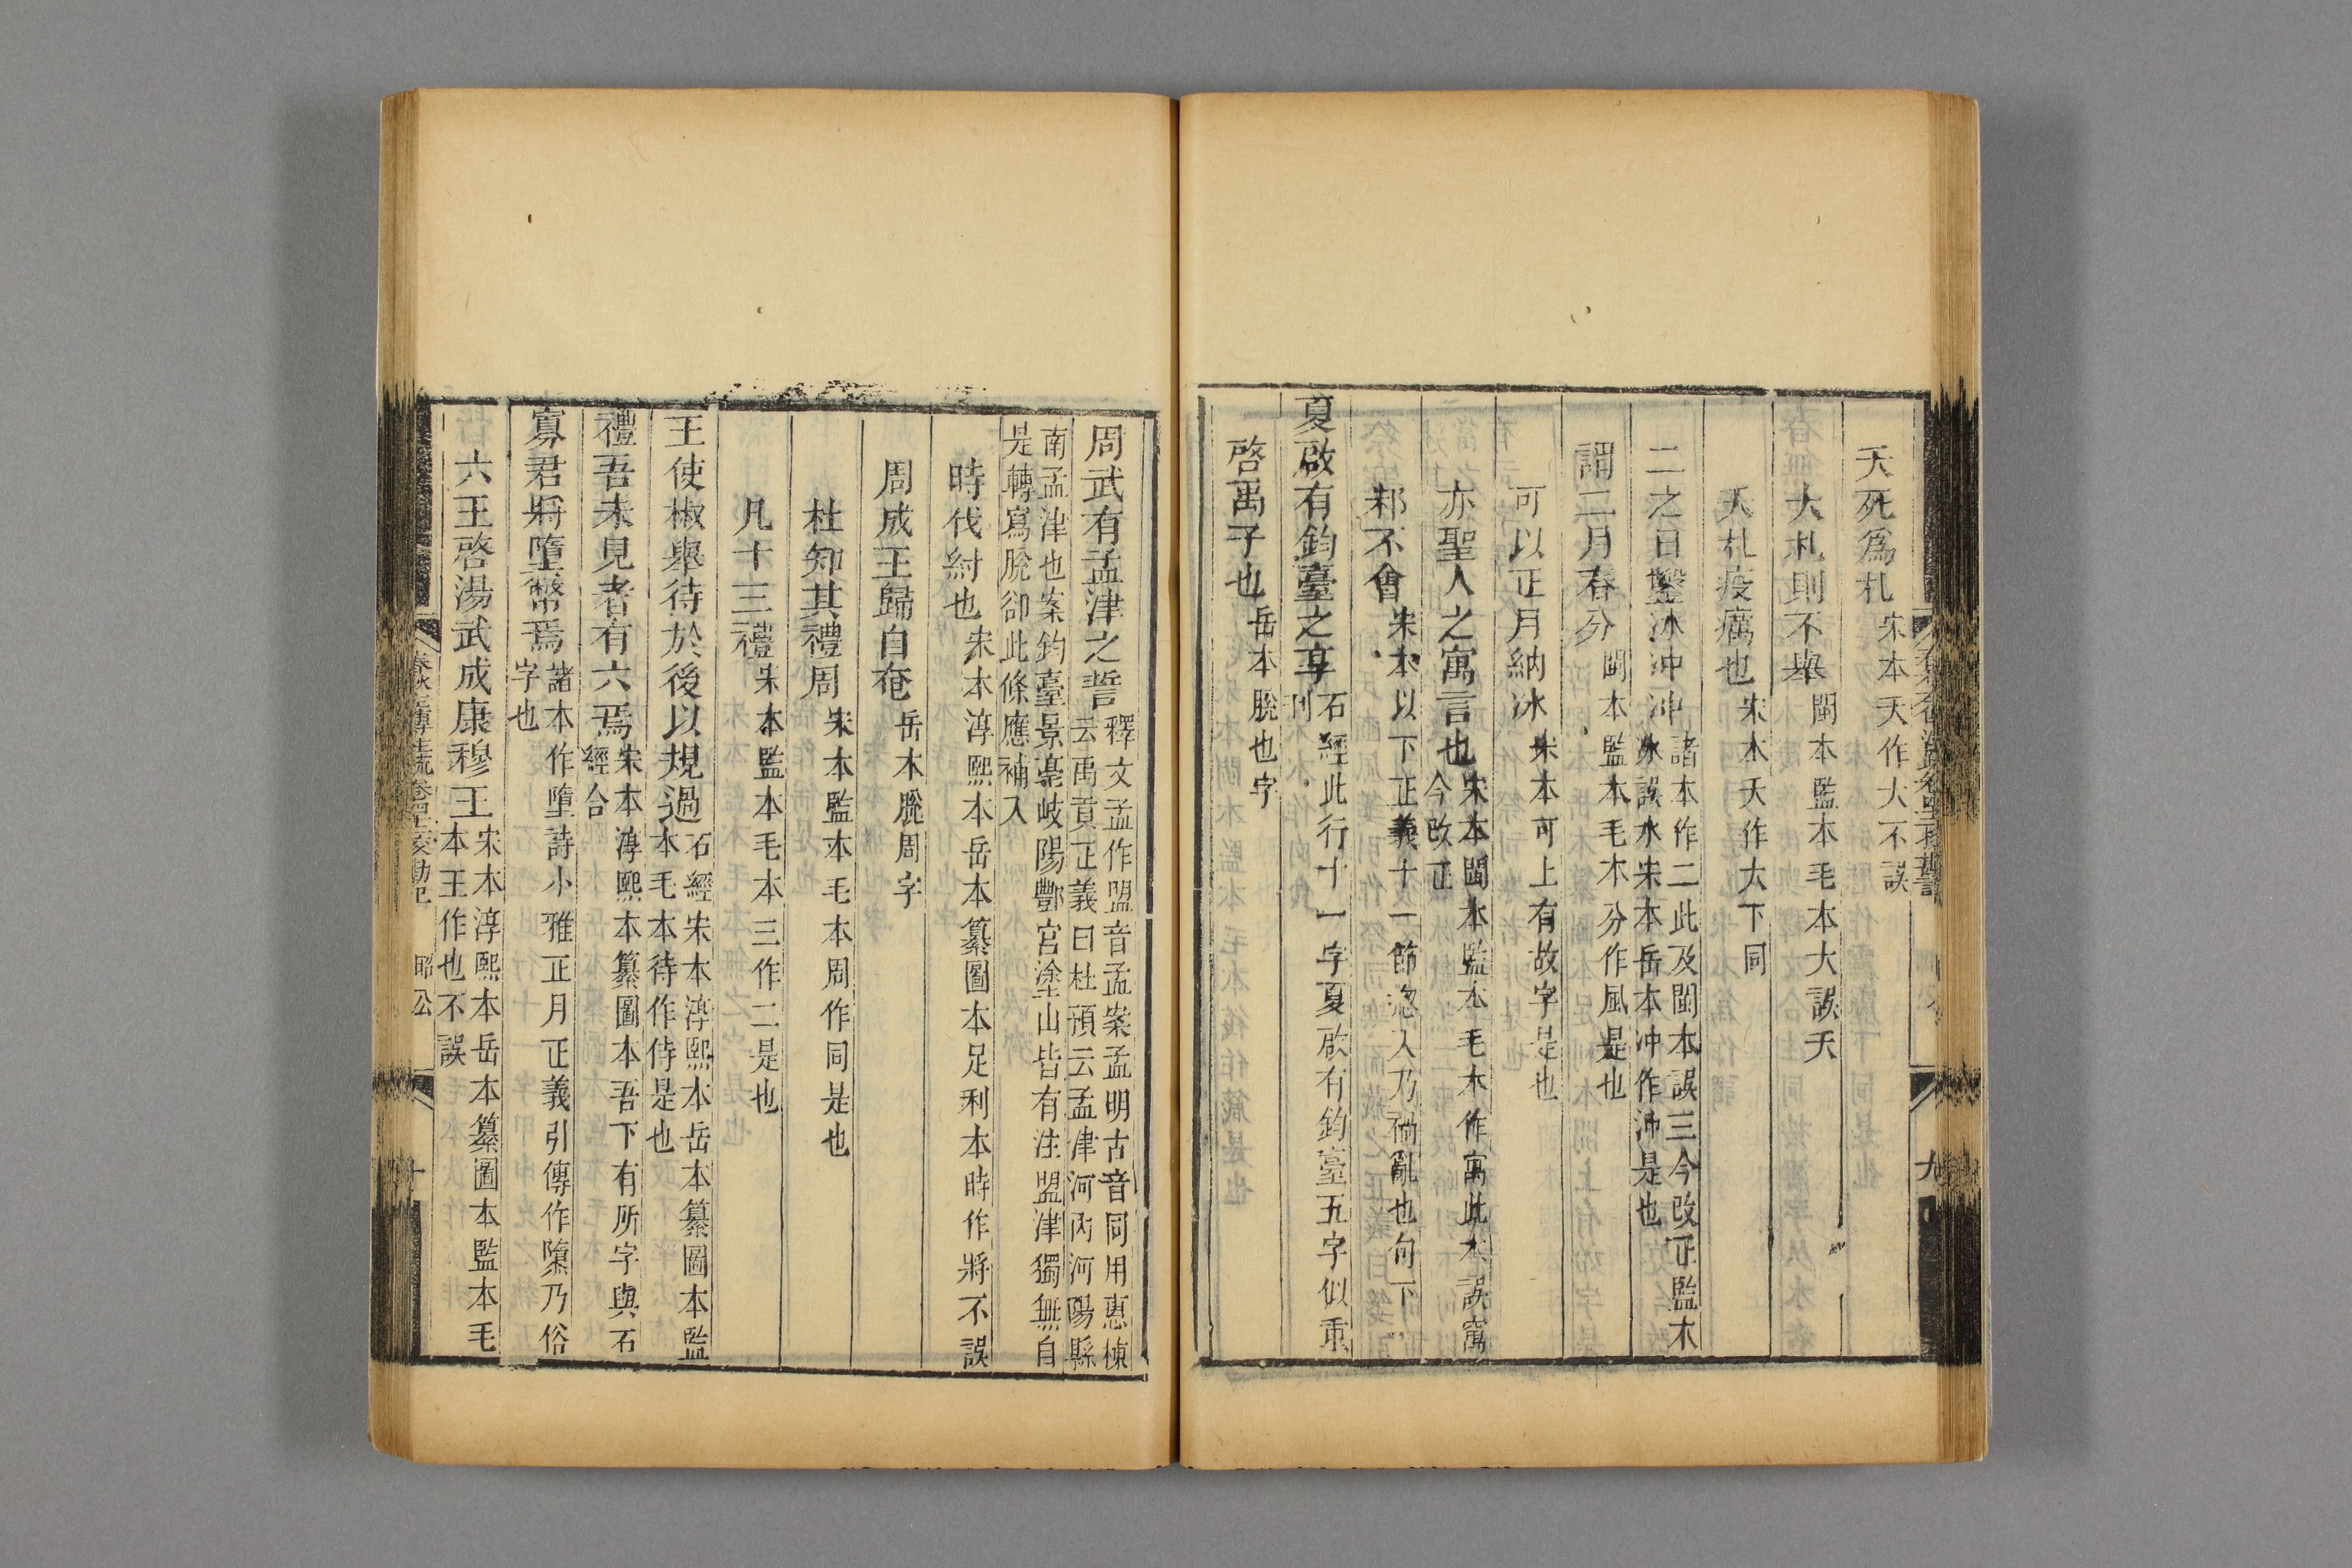 天死爲札宋本天作大不誤
大札則不舉閩本監本毛本大誤天
天札疫癘也宋本天作大下同
二之日鑿冰沖沖諸本作二此及閩本誤三今改正監本
冰誤水宋本岳本沖作沖是也
謂二月春分閩本監本毛本分作風是也
可以正月納冰宋本可上有故字是也
亦聖人之寓言也宋本閩本監本毛本作寓此本誤寓
今改正
邾不會宋本以下正義十一節惣入乃禍亂也句下
夏啟有鈞臺之享石經此行十一字夏啟有鈞臺五字似重
刊
啓禹子也岳本脫也字
九
周武有孟津之誓釋文孟作盟音孟案孟明古音同用惠棟
云禹貢正義曰杜預云孟津河內河陽縣
南孟津也案鈞臺景亳岐陽酆宮塗山皆有注盟津獨無自
是轉寫脫卻此條應補入
時伐紂也宋本淳熙本岳本纂圖本足利本時作將不誤
周成王歸自奄岳本脫周字
杜知其禮周宋本監本毛本周作同是也
凡十三禮宋本監本毛本三作二是也
王使椒舉待於後以規過石經宋本淳熙本岳本纂圖本監
本毛本待作侍是也
禮吾未見者有六焉宋本淳熙本纂圖本吾下有所字與石
經合
寡君將墮幣焉諸本作墮詩小雅正月正義引傳作隳乃俗
字也
六王啓湯武成康穆王宋本淳熙本岳本纂圖本監本毛
本王作也不誤
昭公
十